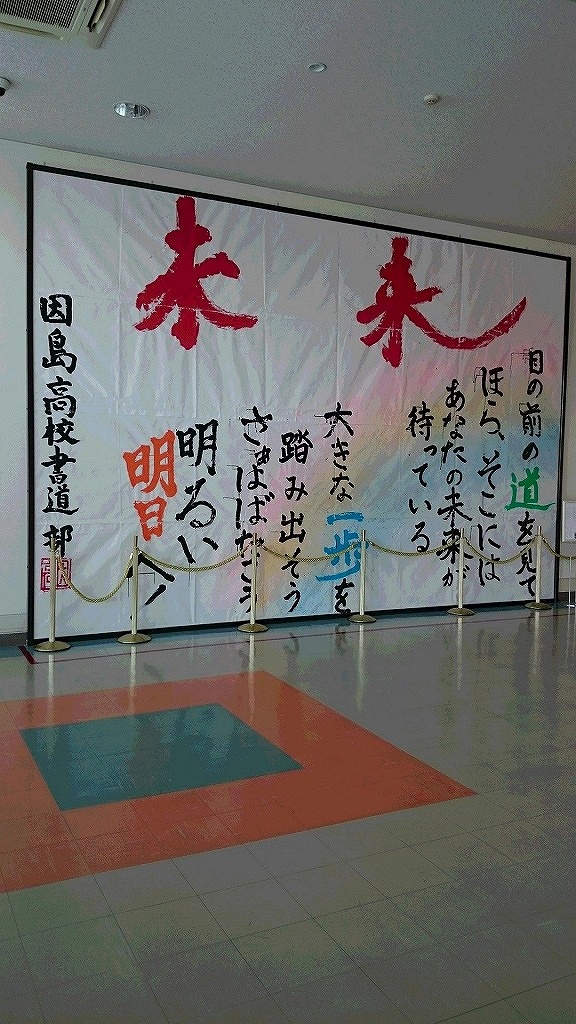 未来
目の前の道を見て
ほら、そこには
あなたの未来が
待っている
大きな一歩を
踏み出そう
さぁはばたこう
明るい
明日へ
因島高校書道部